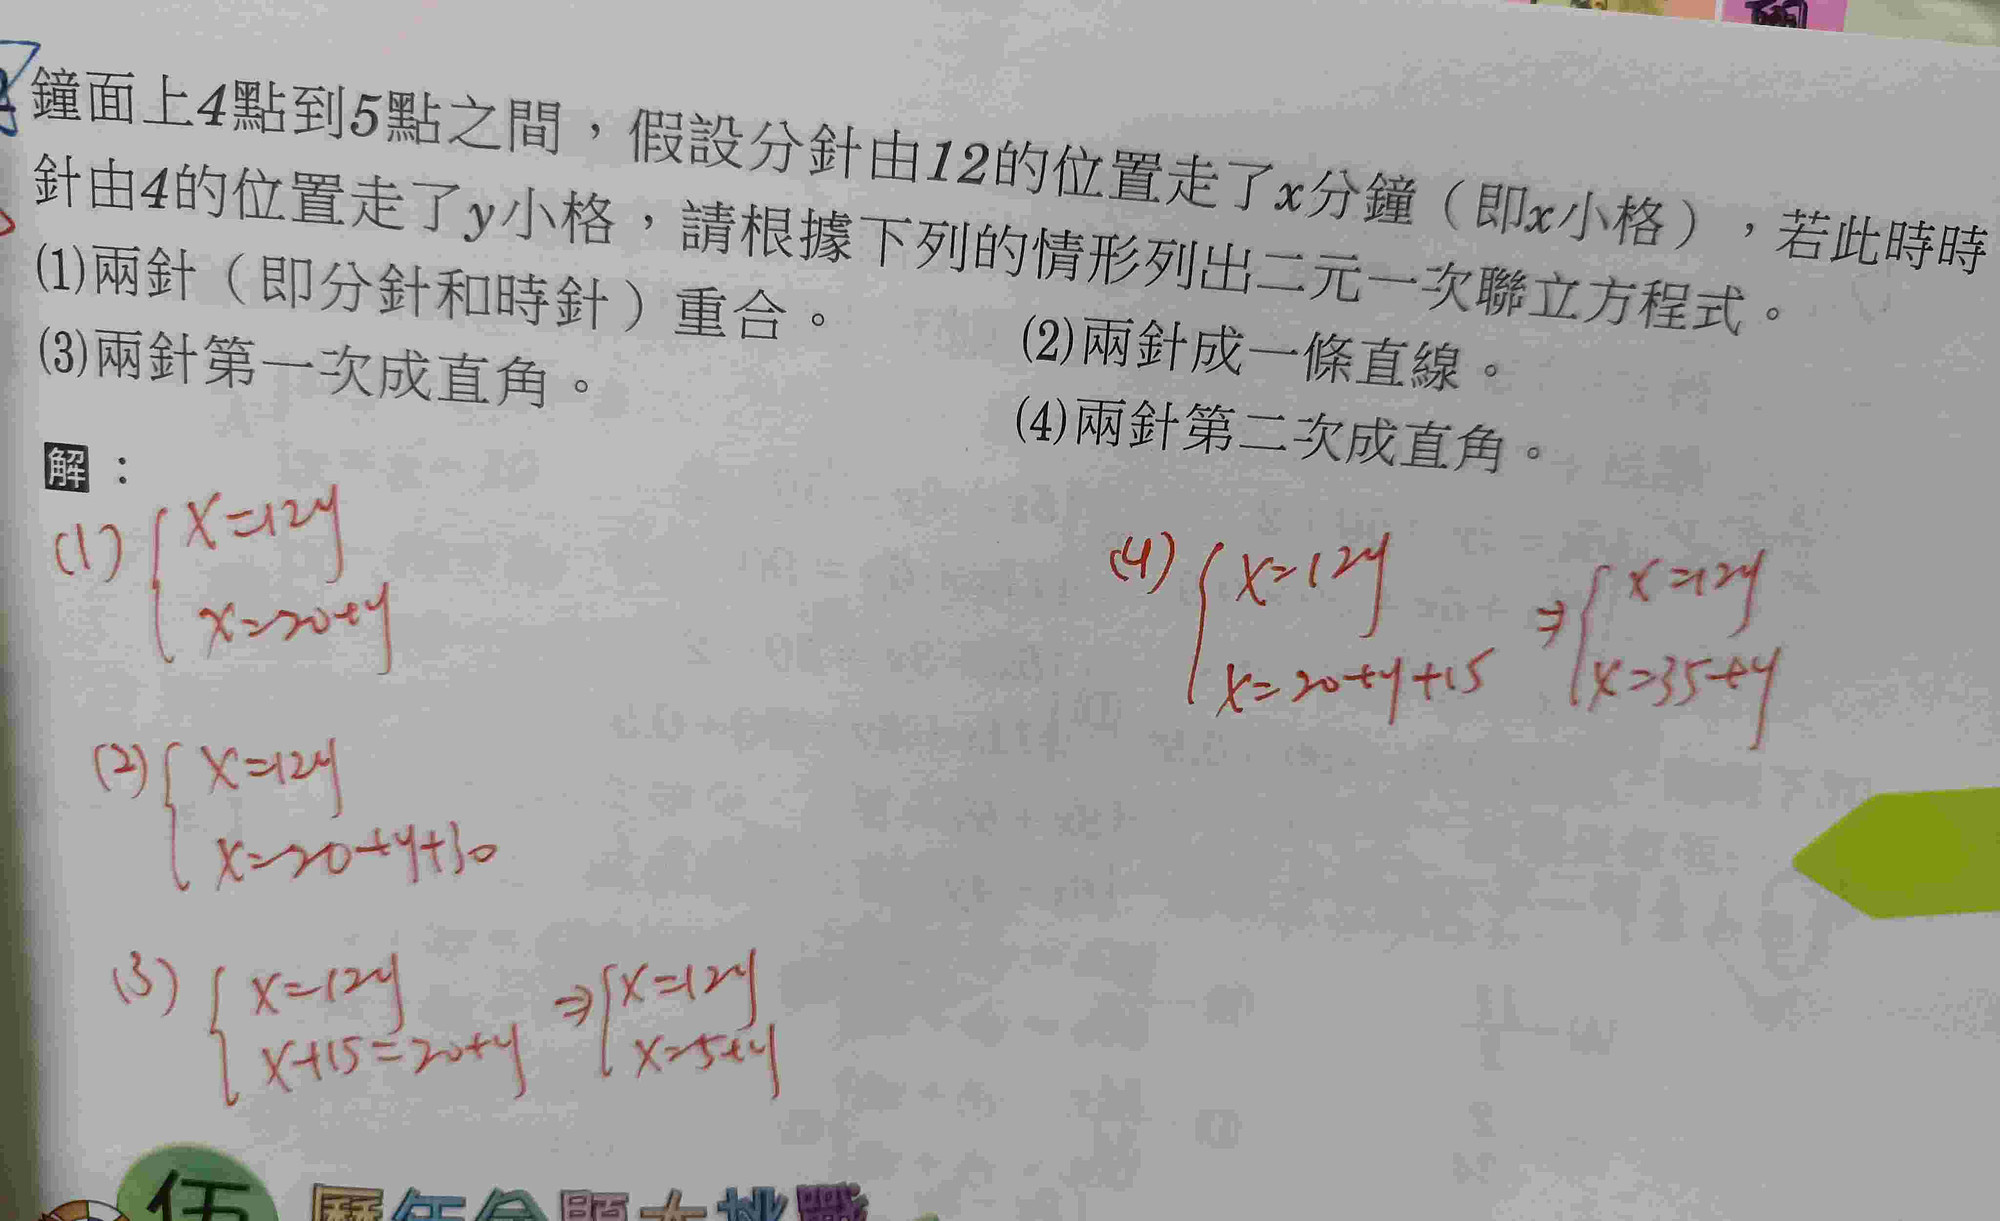 鐘面上4點到5點之間，假設分針由12的位置走了x分鐘（即x小格），若此時時
針由4的位置走了y小格，請根據下列的情形列出二元一次聯立方程式。
(1)兩針（即分針和時針）重合。
(2)兩針成一條直線。
(3)兩針第一次成直角。
(4)兩針第二次成直角。
解：
(1) { x=12y
x=20+y
(2) { x=12y
x=20+y+30
(3) { x=12y ⇒ { x=12y
x+15=20+y x=5+y
(4) { x=12y ⇒ { x=12y
x=20+y+15 x=35+y
伍 歷年會題大挑戰